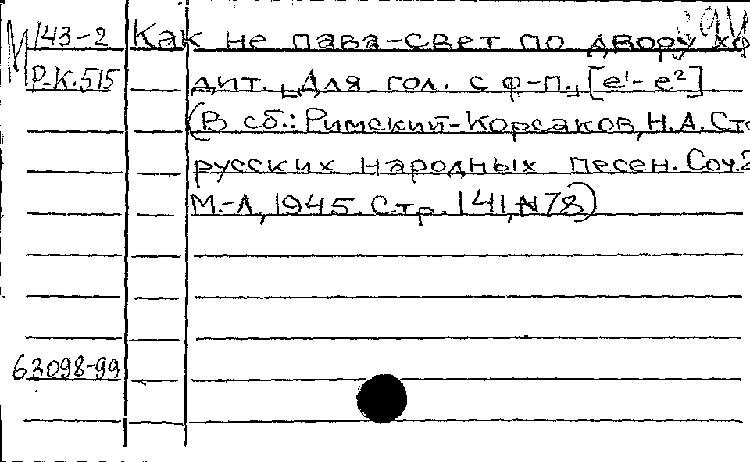 М 143-2 Как не пава-свет по двору хо
Р-К.515 дит. Для гол. с ф-п., [e¹- e²]
(В сб.: Римский-Корсаков, Н.А. Сто
русских народных песен. Соч.2
М.-Л, 1945. Стр. 141, N78)
63098-99